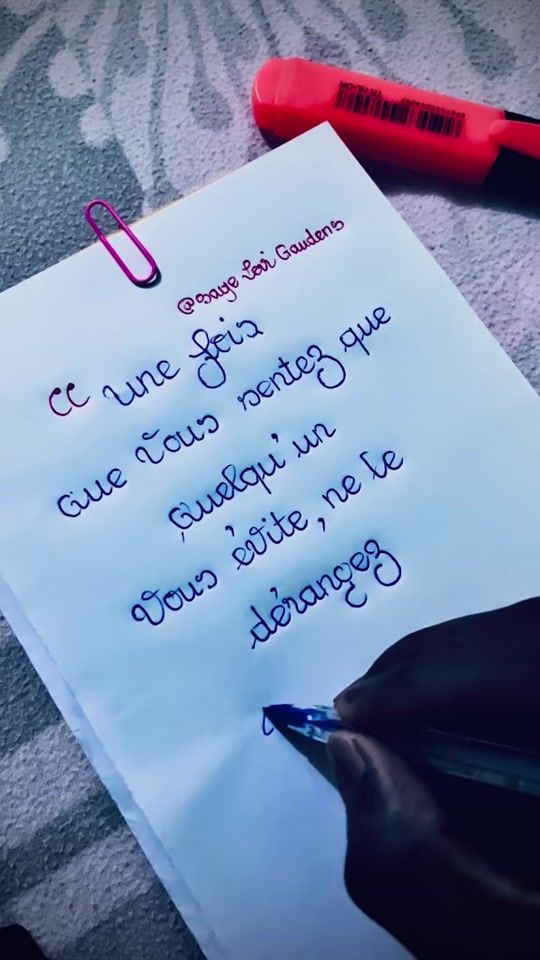 @saye Lovi Gaudens
“ une fois
que vous sentez que
quelqu'un
vous évite, ne le
dérangez